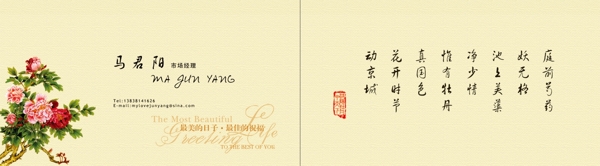 马君阳 市场经理
MA JUN YANG
Tel:13838141626
E-mail:mylovejunyang@sina.com
The Most Beautiful
最美的日子·最佳的祝福
Greeting Life
TO THE BEST OF YOU
庭前芍药
妖无格
池上芙蕖
净少情
惟有牡丹
真国色
花开时节
动京城